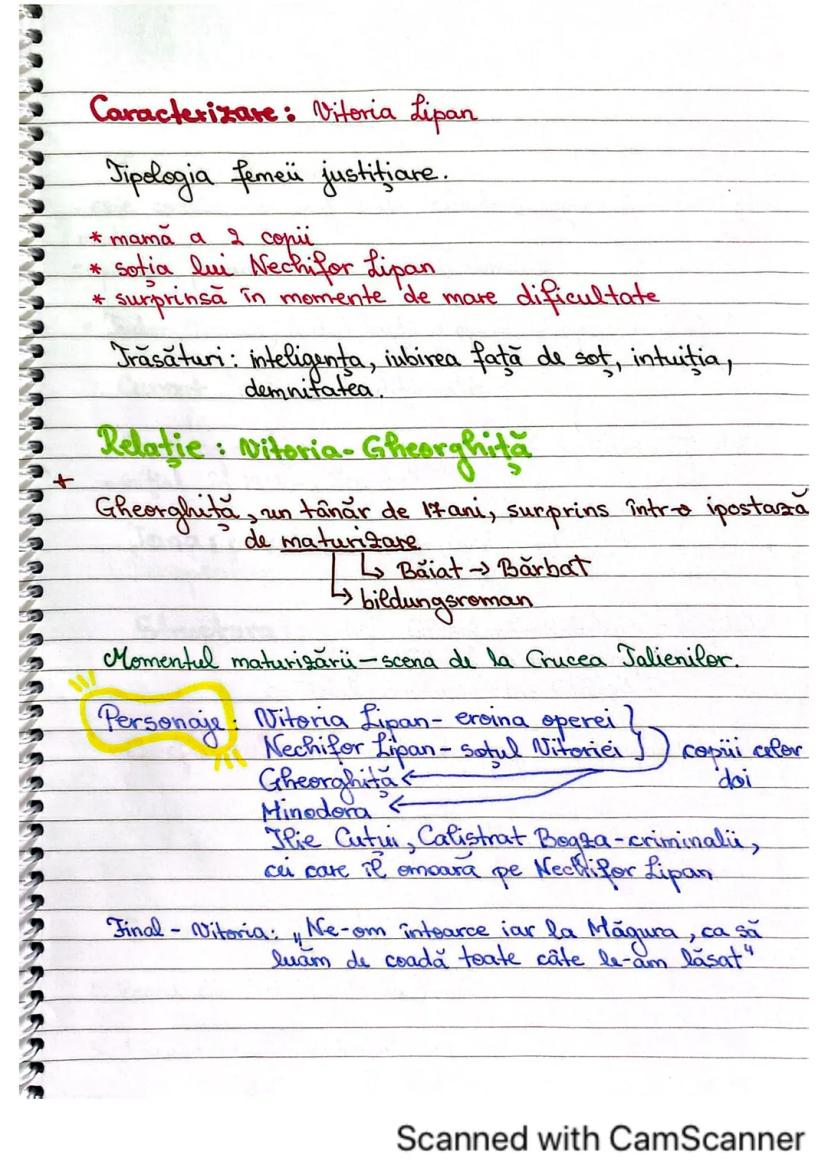 Caracterizare: Vitoria Lipan
Tipologia femeii justițiare.
* mamă a 2 copii
* soția lui Nechifor Lipan
* surprinsă în momente de mare dificultate
Trăsături: inteligența, iubirea față de soț, intuiția,
demnitatea.
Relație: Vitoria-Gheorghiță
+
Gheorghiță, un tânăr de 17 ani, surprins într-o ipostază
de maturizare
↳ Băiat → Bărbat
↳ bildungsroman
Momentul maturizării – scena de la Crucea Talienilor.
Personaje: Vitoria Lipan - eroina operei
Nechifor Lipan - soțul Vitoriei } copiii celor
Gheorghiță ← doi
Minodora ←
Ilie Cutui, Calistrat Bogza - criminalii,
cei care îl omoară pe Nechifor Lipan
Final - Vitoria: „Ne-om întoarce iar la Măgura, ca să
luăm de coadă toate câte le-am lăsat"
Scanned with CamScanner